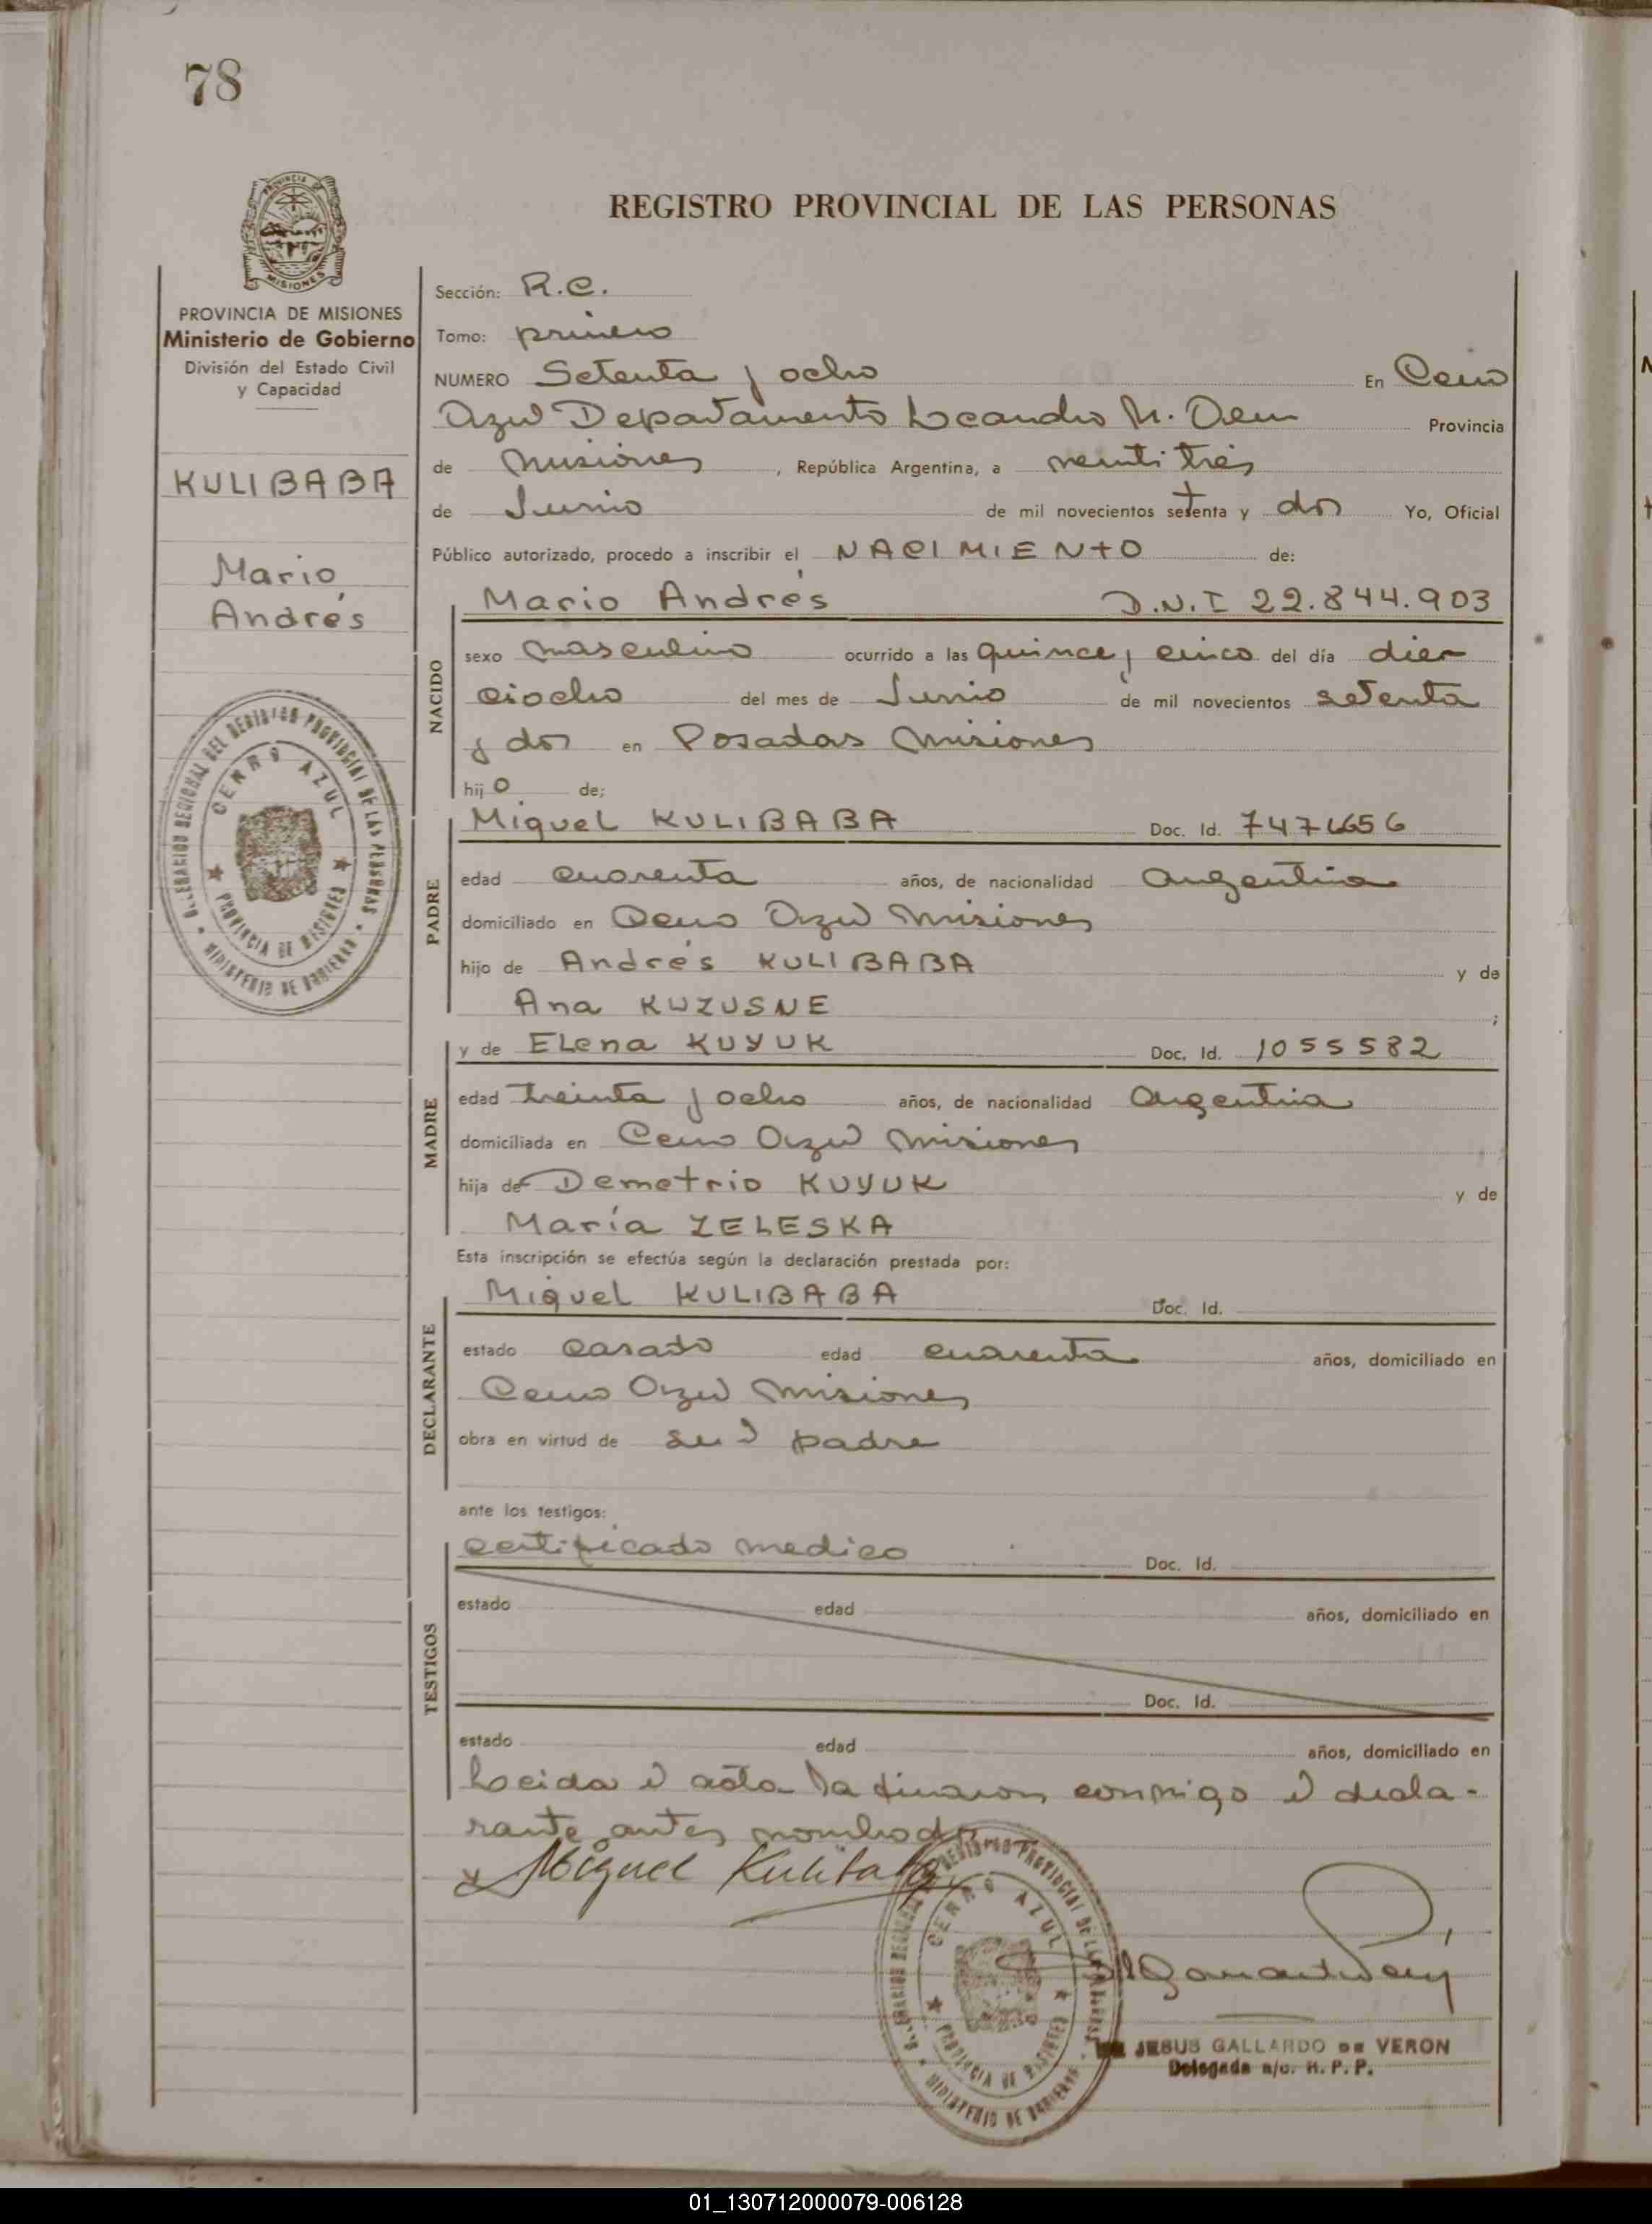 78
REGISTRO PROVINCIAL DE LAS PERSONAS
PROVINCIA DE MISIONES
Ministerio de Gobierno
División del Estado Civil
y Capacidad
KULIBABA
Mario
Andrés
Sección: R.C.
Tomo: primero
NUMERO Setenta y ocho En Cerro
Azul Departamento Leandro N. Alem Provincia
de Misiones, República Argentina, a veintitrés
de Junio de mil novecientos setenta y dos Yo, Oficial
Público autorizado, procedo a inscribir el NACIMIENTO de:
NACIDO
Mario Andrés D.N.I 22.844.903
sexo masculino ocurrido a las quince y cinco del día diez
ciocho del mes de Junio de mil novecientos setenta
y dos en Posadas Misiones
hijo de;
PADRE
Miguel KULIBABA Doc. Id.
edad cuarenta años, de nacionalidad Argentina
domiciliado en Cerro Azul Misiones
hijo de Andrés KULIBABA y de
Ana KUZUSNE ;
MADRE
y de Elena KUYUK Doc. Id. 1055582
edad treinta y ocho años, de nacionalidad Argentina
domiciliada en Cerro Azul Misiones
hija de Demetrio KUYUK y de
María ZELESKA
Esta inscripción se efectúa según la declaración prestada por:
DECLARANTE
Miguel KULIBABA Doc. Id.
estado casado edad cuarenta años, domiciliado en
Cerro Azul Misiones
obra en virtud de ser el padre
ante los testigos:
TESTIGOS
certificado medico Doc. Id.
estado edad años, domiciliado en
Doc. Id.
estado edad años, domiciliado en
Leida el acta la firman conmigo el decla-
rante antes nombrado
Miguel Kulibaba
DELEGACION REGIONAL DEL REGISTRO PROVINCIAL DE LAS PERSONAS
CERRO AZUL
PROVINCIA DE MISIONES
MINISTERIO DE GOBIERNO
DELEGACION REGIONAL DEL REGISTRO PROVINCIAL DE LAS PERSONAS
CERRO AZUL
PROVINCIA DE MISIONES
MINISTERIO DE GOBIERNO
JESUS GALLARDO DE VERON
Delegada a/c. R. P. P.
01_130712000079-006128